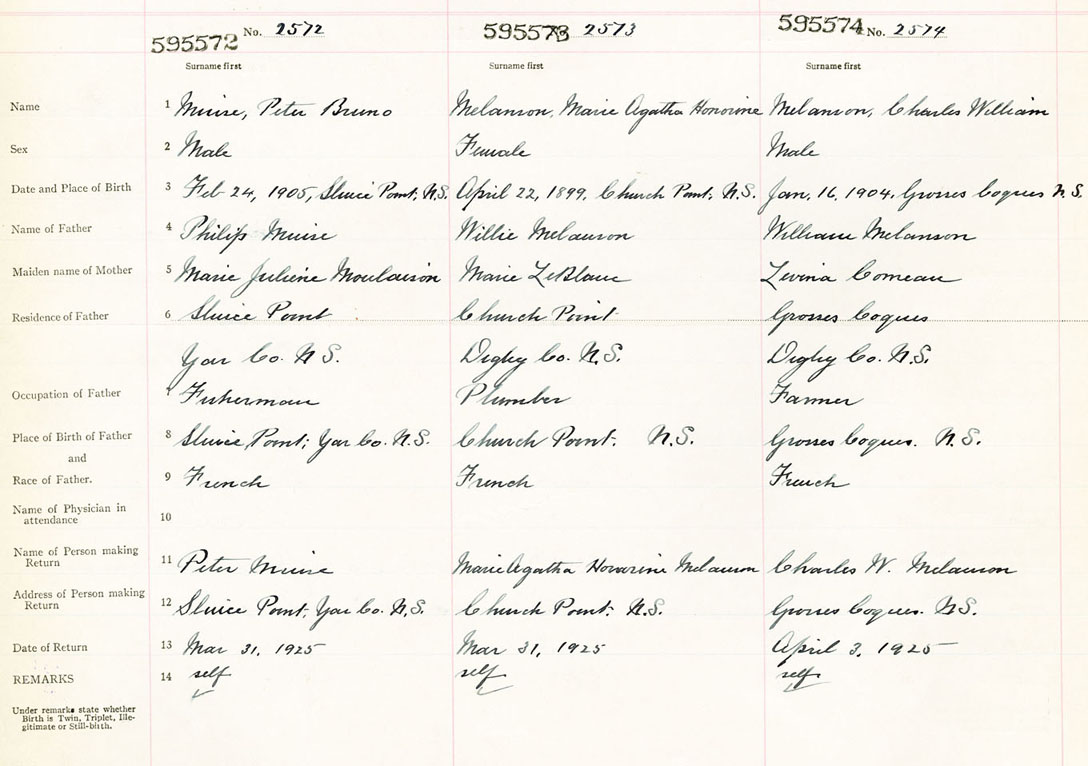 595572 No. 2572 595573 2573 595574 No. 2574
Surname first Surname first Surname first
Name 1 Muise, Peter Bruno Melanson, Marie Agatha Honorine Melanson, Charles William
Sex 2 Male Female Male
Date and Place of Birth 3 Feb 24, 1905, Sluice Point, N.S. April 22, 1899, Church Point, N.S. Jan. 16, 1904, Grosses Coques N.S.
Name of Father 4 Philip Muise Willie Melanson William Melanson
Maiden name of Mother 5 Marie Juliene Moulaison Marie LeBlanc Levina Comeau
Residence of Father 6 Sluice Point Church Point Grosses Coques
Yar Co. N.S. Digby Co. N.S. Digby Co. N.S.
Occupation of Father 7 Fisherman Plumber Farmer
Place of Birth of Father 8 Sluice Point, Yar Co. N.S. Church Point. N.S. Grosses Coques. N.S.
and
Race of Father. 9 French French French
Name of Physician in
attendance 10
Name of Person making
Return 11 Peter Muise Marie Agatha Honorine Melanson Charles W. Melanson
Address of Person making
Return 12 Sluice Point, Yar Co. N.S. Church Point. N.S. Grosses Coques. N.S.
Date of Return 13 Mar 31, 1925 Mar 31, 1925 April 3, 1925
REMARKS 14 self self self
Under remarks state whether
Birth is Twin, Triplet, Ille-
gitimate or Still-birth.